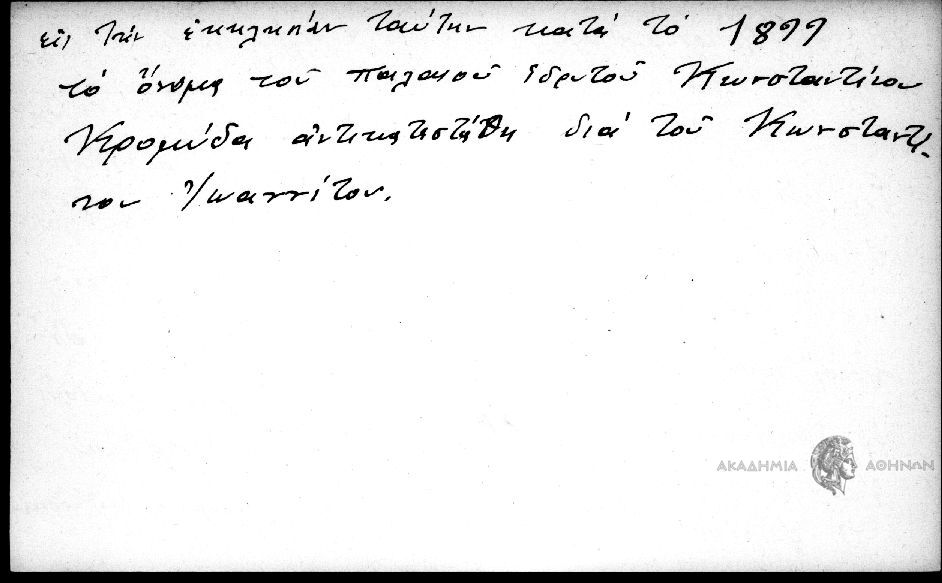 εἰς τὴν ἐκκλησίαν ταύτην κατὰ τὸ 1899
τὸ ὄνομα τοῦ παλαιοῦ ἱδρυτοῦ Κωνσταντίνου
Κρομύδα ἀντικατεστάθη διὰ τοῦ Κωνσταντί-
νου Ἰωαννίτου.
ΑΚΑΔΗΜΙΑ ΑΘΗΝΩΝ